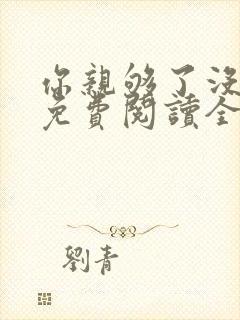 你親够了沒
免費閱讀全
劉青